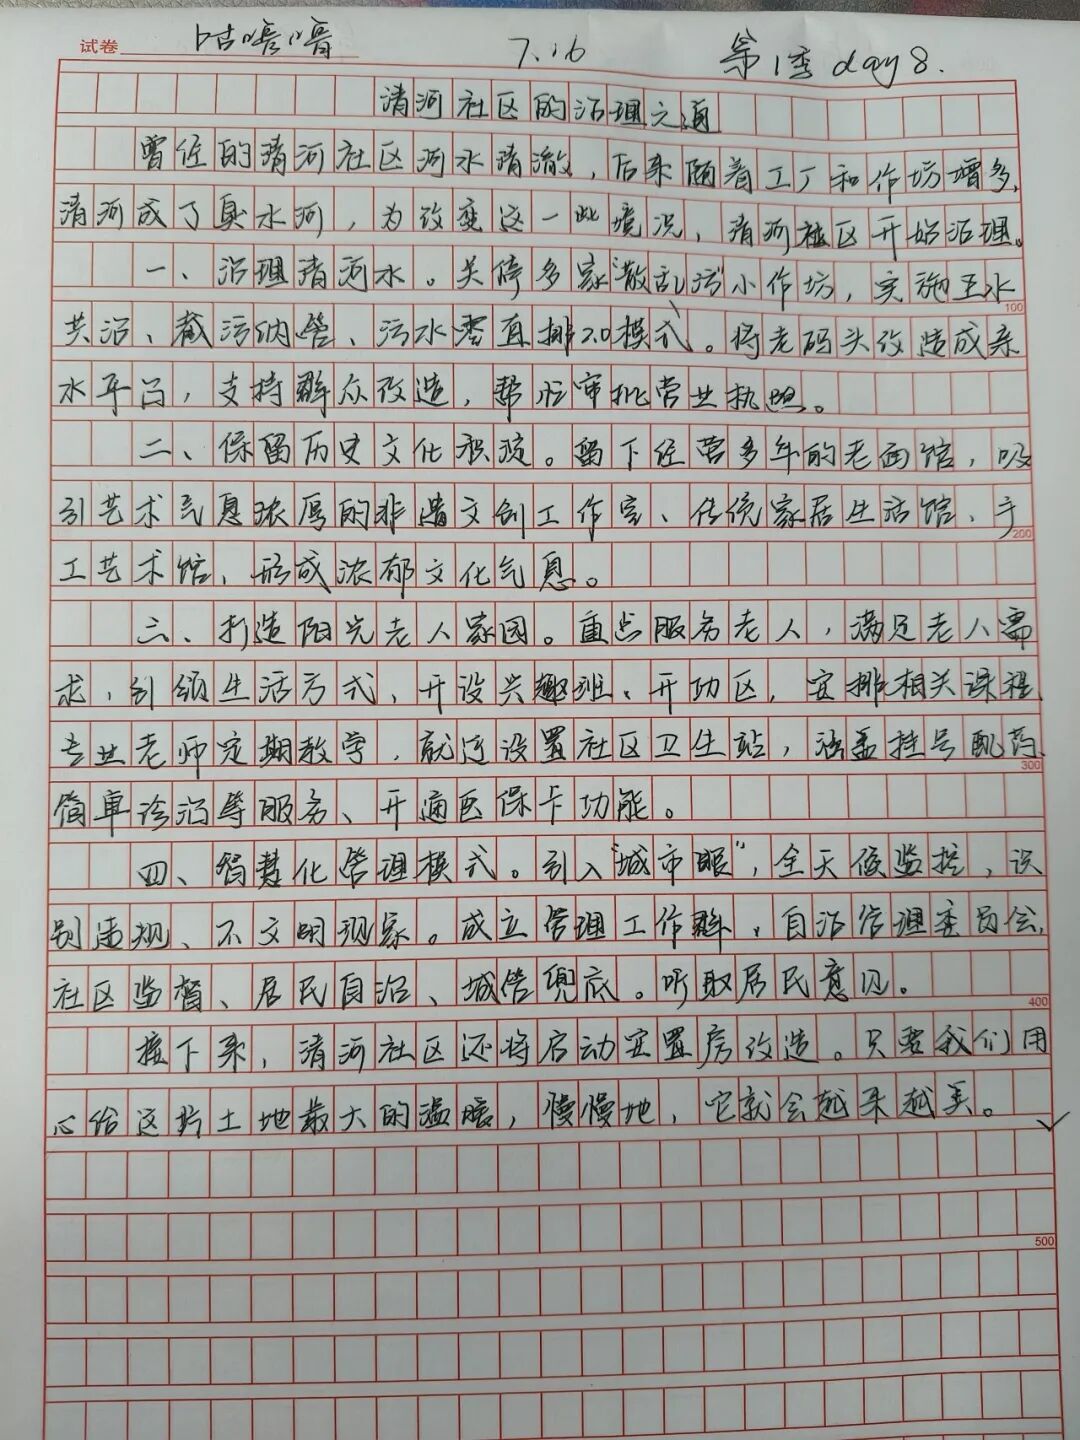 试卷 咕嘻嘻 7.16 第1季day8.
清河社区的治理之道
曾经的清河社区河水清澈，后来随着工厂和作坊增多，
清河成了臭水河，为改变这一此境况，清河社区开始治理。
一、治理清河水。关停多家"散乱污"小作坊，实施五水
100
共治、截污纳管、污水零直排2.0模式。将老码头改造成亲
水平台，支持群众改造，帮忙审批营业执照。
二、保留历史文化积淀。留下经营多年的老面馆，吸
引艺术气息浓厚的非遗文创工作室、传统家居生活馆、手
200
工艺术馆，形成浓郁文化气息。
三、打造阳光老人家园。重点服务老人，满足老人需
求，引领生活方式，开设兴趣班、开功区，安排相关课程
专业老师定期教学，就近设置社区卫生站，涵盖挂号配药、
300
简单诊治等服务、开通医保卡功能。
四、智慧化管理模式。引入"城市眼"，全天候监控，识
别违规、不文明现象。成立管理工作群，自治管理委员会，
社区监督、居民自治、城管兜底。听取居民意见。
400
接下来，清河社区还将启动安置房改造。只要我们用
心给这片土地最大的温暖，慢慢地，它就会越来越美。
500